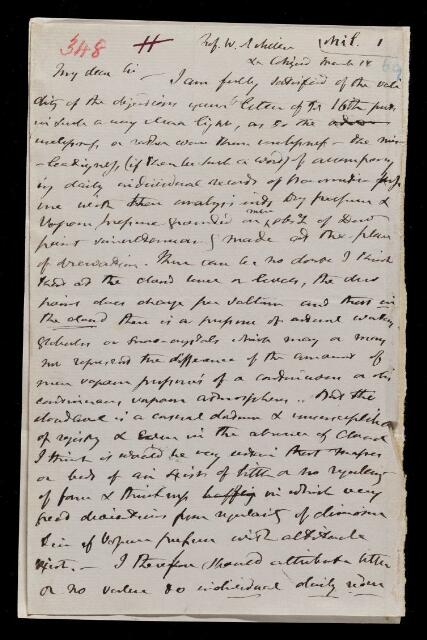 348 H Prof. W. Miller Mil. 1
March 18 69
My dear Sir — I am fully satisfied of the vali
dity of the objections your letter of the 16th puts
in such a very clear light, as to the
uselessness, or rather worse than useless – the mis
-leadingness, (if there be such a word) of accompany
ing daily individual records of barometric
ure with analysis into Dry pressure &
Vapour pressure grounded on mere obsns of Dew
point simultaneously made at the place
of observation. There can be no doubt I think
that at the cloud level or levels, the dew
point does change per saltum and that in
the cloud there is a pressure of actual watery
globules or snow-crystals which may or may
not represent the difference of the amount of
mean vapour pressures of a continuous or dis
continuous vapour atmosphere. But the
cloud level is a casual datum & unsusceptible
of registry & even in the absence of cloud
I think it would be very certain that masses
or beds of air exist of little or no regularity
of form & thickness in which very
great deviations from regularity of diminu
tion of vapour pressure with altitude
exist. — I therefore should attribute little
or no value to individual daily